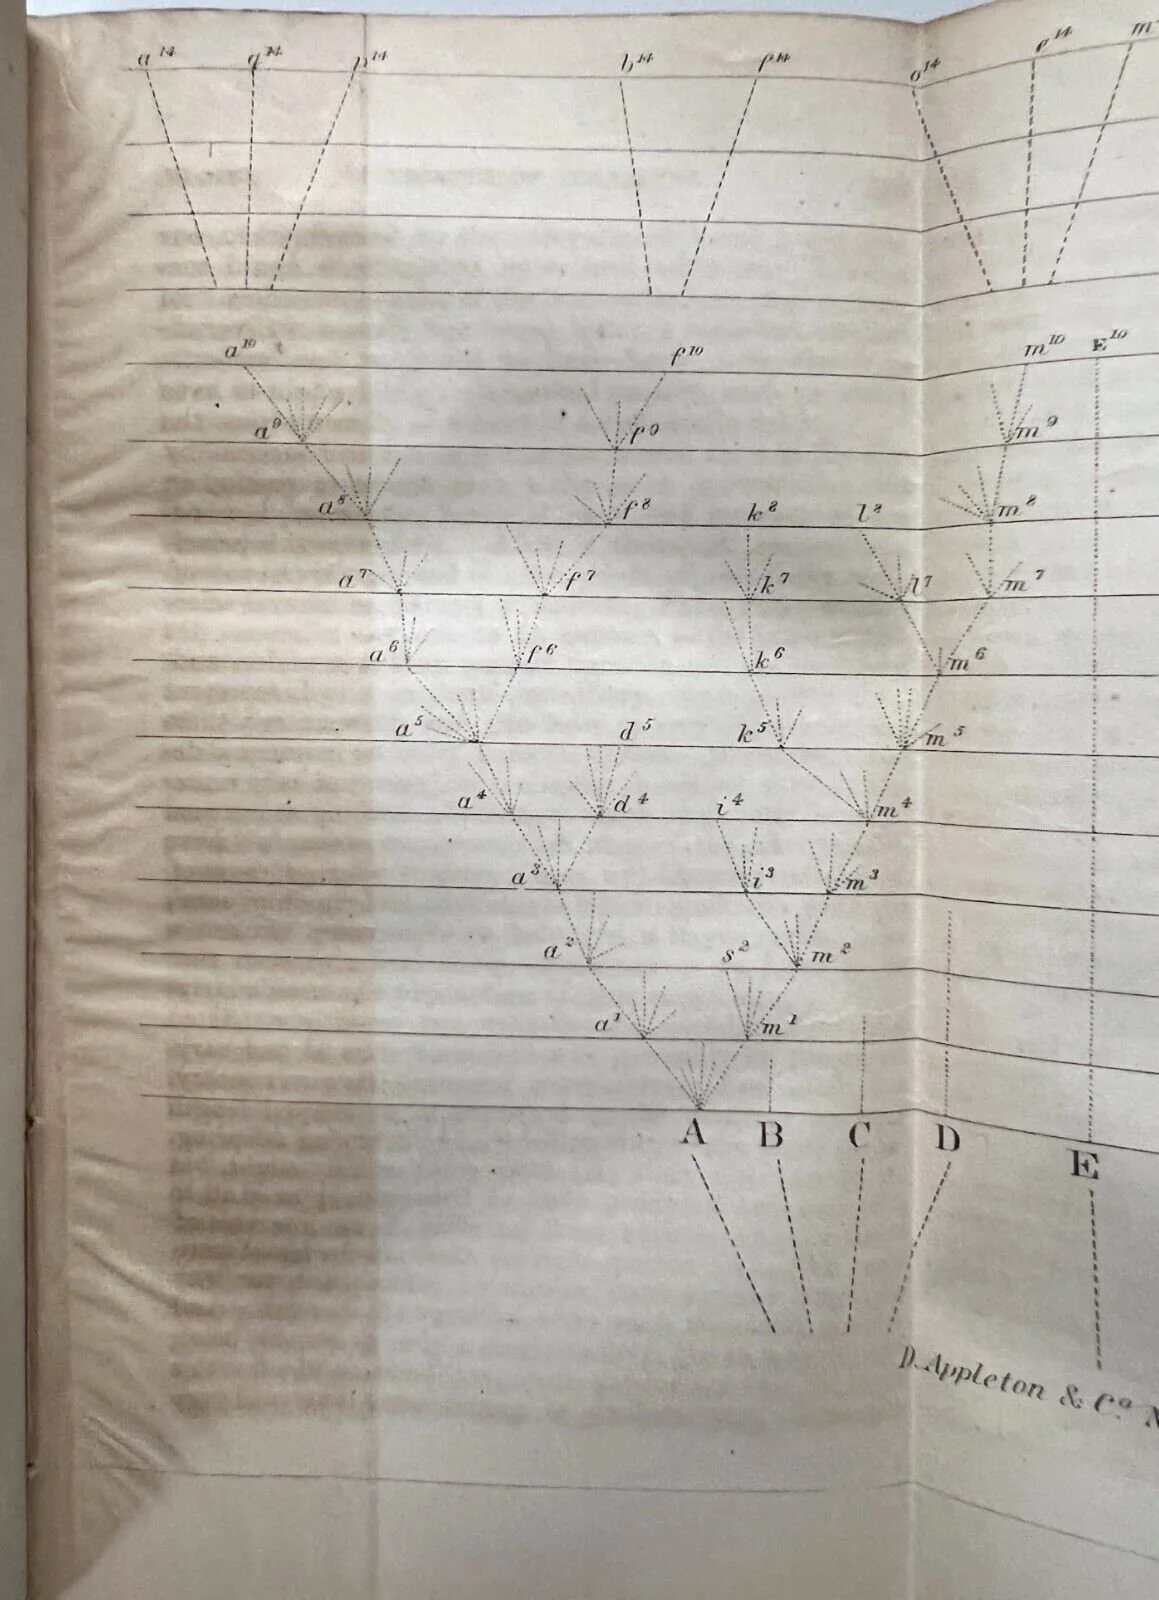 a¹⁴ q¹⁴ p¹⁴ b¹⁴ f¹⁴ o¹⁴ e¹⁴ m
a¹⁰ f¹⁰ m¹⁰ E¹⁰
a⁹ f⁹ m⁹
a⁸ f⁸ k⁸ l⁸ m⁸
a⁷ f⁷ k⁷ l⁷ m⁷
a⁶ f⁶ k⁶ m⁶
a⁵ d⁵ k⁵ m⁵
a⁴ d⁴ i⁴ m⁴
a³ i³ m³
a² s² m²
a¹ m¹
A B C D E
D. Appleton & Cº N